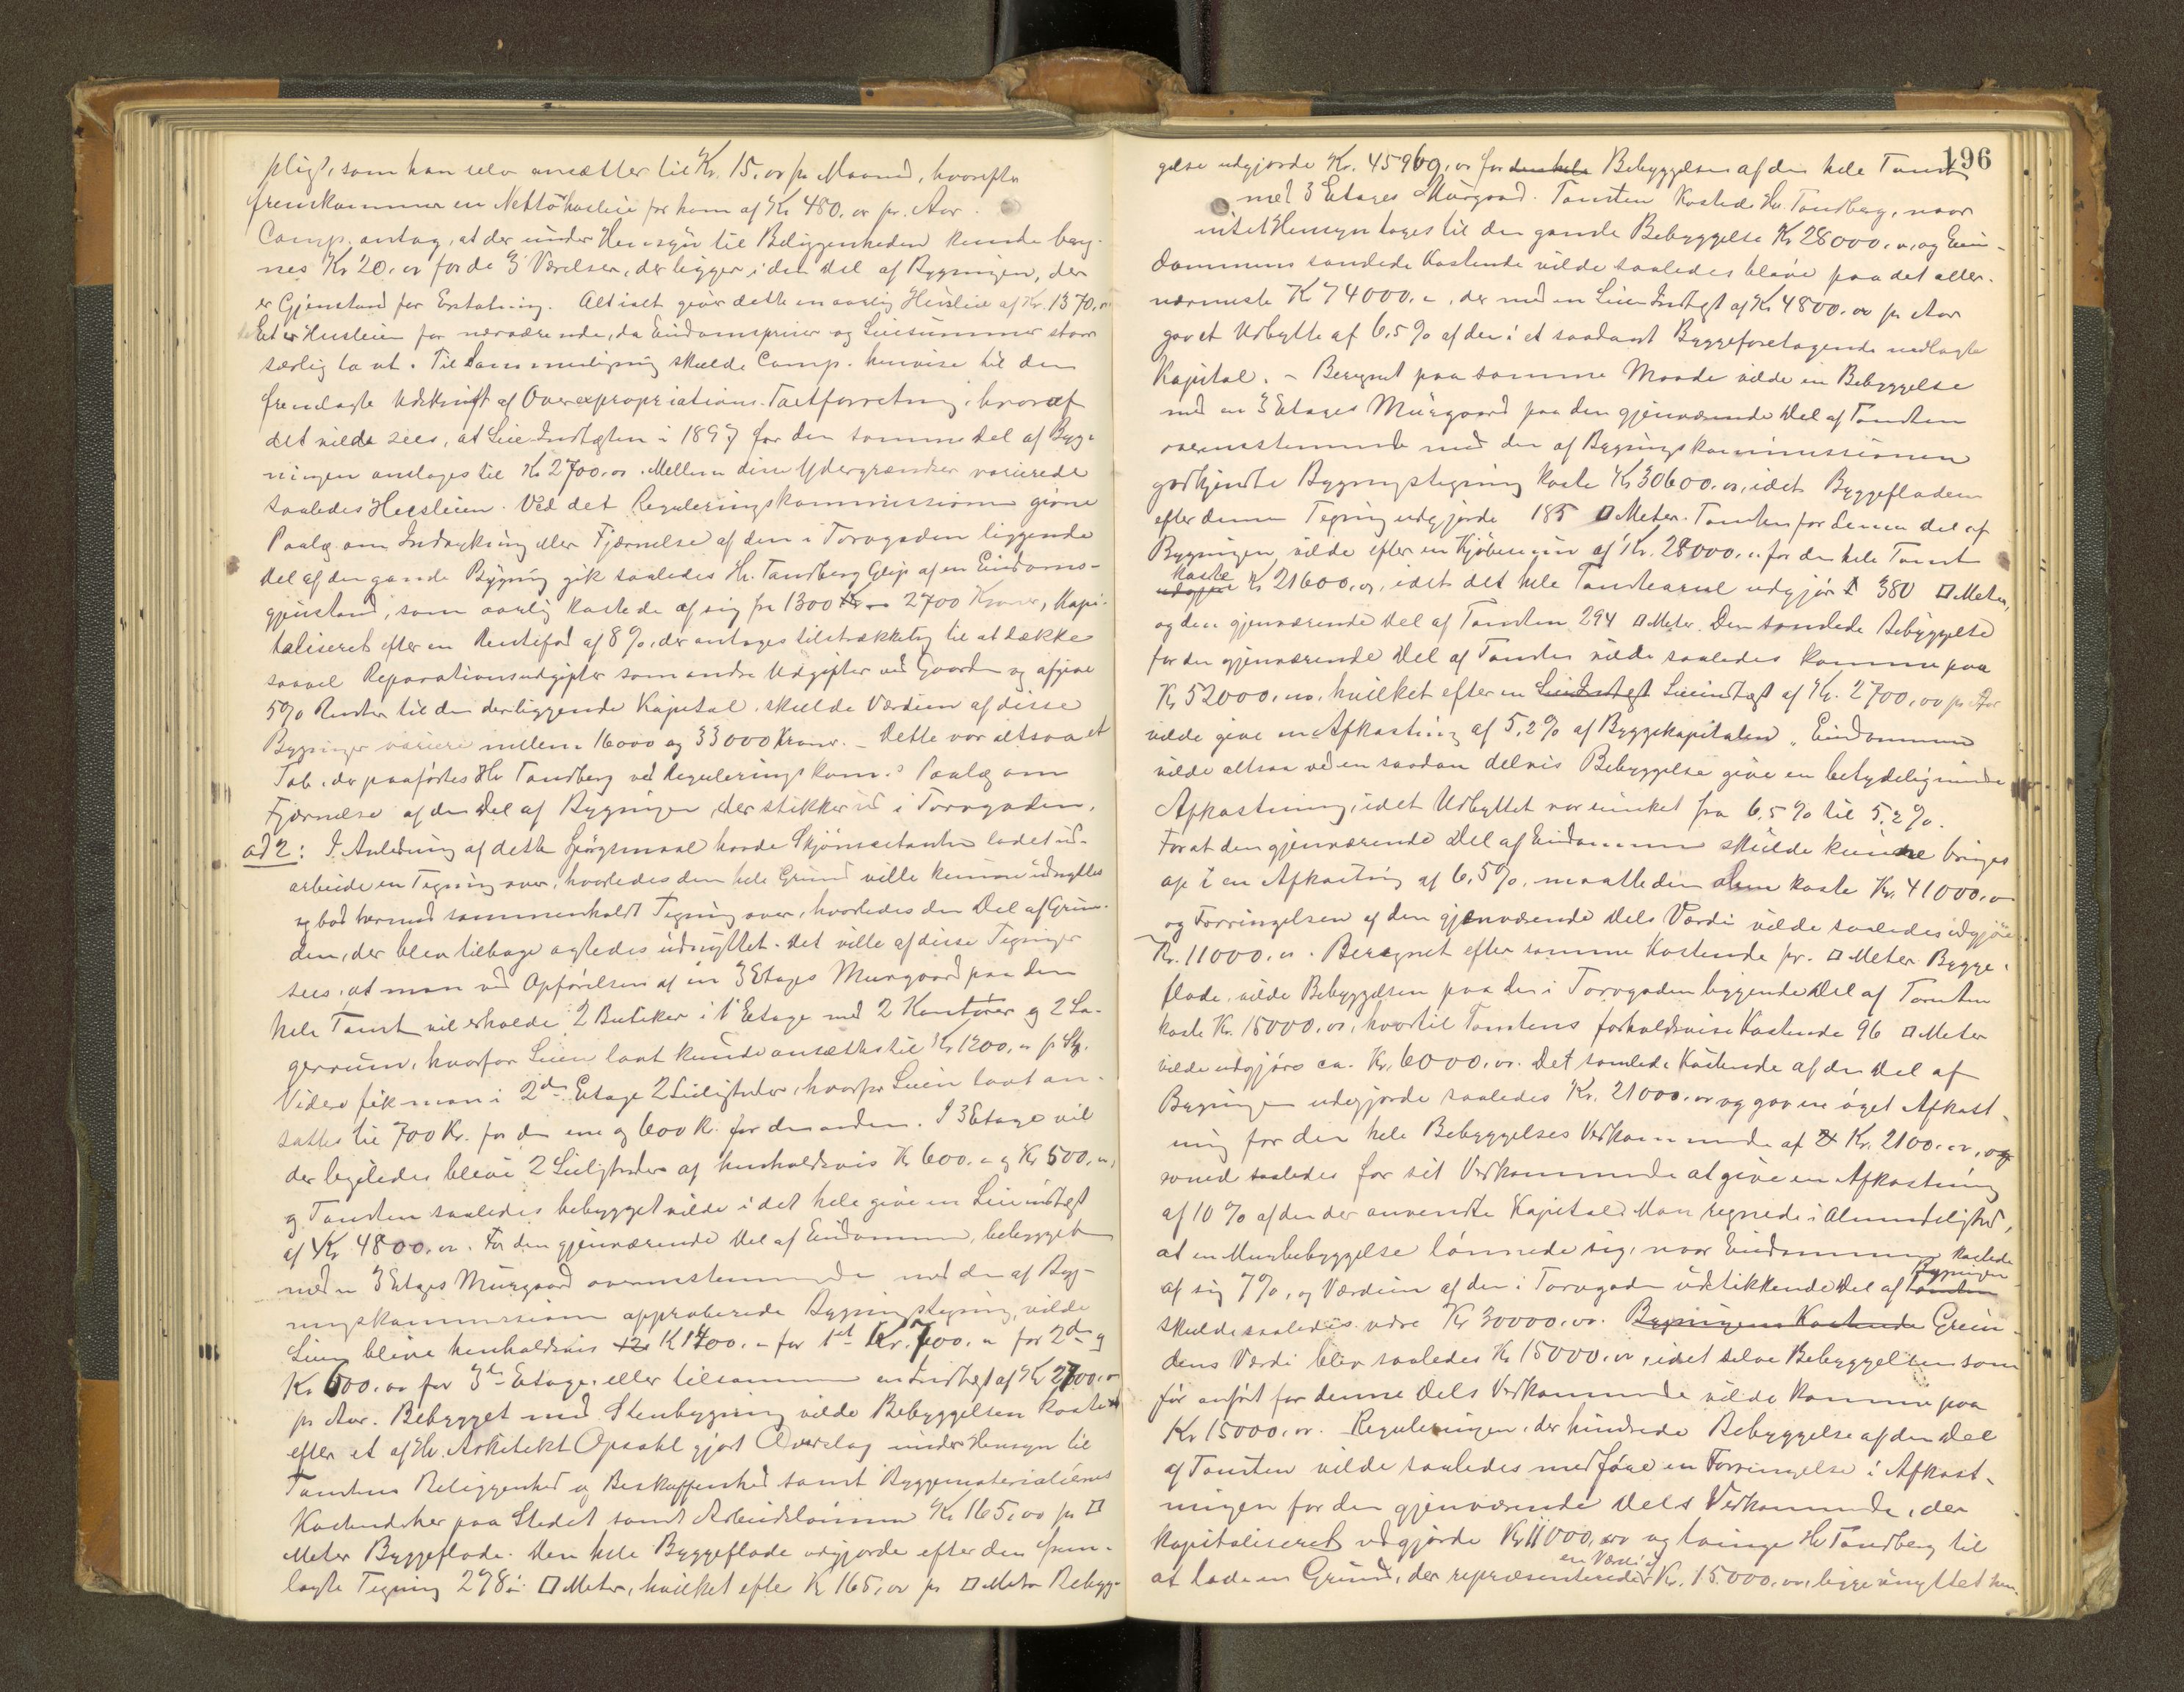 pligt, som han selv ansætter til Kr. 15,00 pr Maaned, hvorefter
fremkommer en Nettohusleie for ham af Kr 480,00 pr. Aar.
Comp. antog, at der under Hensyn til Beliggenheden kunde bereg-
nes Kr 20,00 for de 3 Værelser, der ligger i den Del af Bygningen, der
er Gjenstand for Erstatning. Alt ialt giver dette en aarlig Husleie af Kr. 1370,00
Det er Husleien for nærværende, da Eiendomspriser og Leiesummer staar
særlig lavt. Til Sammenligning skulde Comp. henvise til den
fremlagte Udskrift af Overexpropriations-Taxtforretning, hvoraf
det vilde sees, at Leie-Indtægten i 1897 for den samme Del af Byg-
ningen antages til Kr 2700,00. Mellem disse Ydergrændser varierede
saaledes Husleien. Ved det Reguleringskommissionen givne
Paalæg om Indrykning eller Fjærnelse af den i Torvgaden liggende
Del af den gamle Bygning gik saaledes Hr. Tandberg Glip af en Eiendoms-
gjenstand, som aarlig kastede af sig fra 1300 Kr – 2700 Kroner, Kapi-
taliseret efter en Rentefod af 8%, der antages tilstrækkelig til at dække
saavel Reparationsudgifter som andre Udgifter ved Gaarden og afgive
5% Renter til den deri liggende Kapital, skulde Værdien af disse
Bygninger variere mellem 16000 og 33000 Kroner. – Dette var altsaa et
Tab, der paaførtes Hr Tandberg ved Reguleringskom.s Paalæg om
Fjærnelse af den Del af Bygningen, der stikker ud i Torvgaden.
ad 2: I Anledning af dette Spørgsmaal havde Skjønscitanten ladet ud-
arbeide en Tegning over, hvorledes den hele Grund ville kunne udnyttes
og bad hermed sammenholdt Tegning over, hvorledes den Del af Grun-
den, der blev tilbage agtedes udnyttet. Det ville af disse Tegninger
sees, at man ved Opførelsen af en 3 Etages Murgaard paa den
hele Tomt vil erholde 2 Butiker i 1e Etage med 2 Kontorer og 2 La-
gerrum, hvorfor Leien lavt kunde ansættes til Kr 1200,00 pr Stk.
Videre fik man i 2den Etage 2 Leiligheder, hvorfor Leien lavt an-
sattes til 700 Kr. for den ene og 600 Kr. for den anden. I 3 Etage vil
der ligeledes blive 2 Leiligheder af henholdsvis Kr 600,00 og Kr 500,00,
og Tomten saaledes bebygget vilde i det hele give en Leieindtægt
af Kr. 4800,00. For den gjenværende Del af Eiendommen, bebygget
med en 3 Etages Murgaard overensstemmende med den af Byg-
ningskommissionen approberede Bygningstegning, vilde
Leien blive henholdsvis 12 Kr 1400,00 for 1st Kr. 700,00 for 2den og
Kr 600,00 for 3die Etage, eller tilsammen en Indtægt af Kr 2700,00
pr Aar. Bebygget med Stenbygning vilde Bebyggelsen koste
efter et af Hr. Arkitekt Opsahl gjort Overslag under Hensyn til
Tomtens Beliggenhed og Beskaffenhed samt Byggematerialiernes
Kostende her paa Stedet samt Arbeidslønnen Kr 165,00 pr □
Meter Byggeflade. Den hele Byggeflade udgjorde efter den frem-
lagte Tegning 278 □ Meter, hvilket efter Kr 165,00 pr □ Meter Bebyg-
196
gelse udgjorde Kr. 45960,00 for den hele Bebyggelsen af den hele Tomt
med 3 Etages Murgaard. Tomten kostede Hr. Tandberg, naar
intet Hensyn tages til den gamle Bebyggelse Kr 28000,00, og Eien-
dommens samlede Kostende vilde saaledes blive paa det aller-
nærmeste Kr 74000,00, der med en Leie-Indtægt af Kr 4800,00 pr Aar
gav et Udbytte af 6,5% af den i et saadant Byggeforetagende nedlagte
Kapital. – Beregnet paa samme Maade vilde en Bebyggelse
med en 3 Etages Murgaard paa den gjenværende Del af Tomten
overensstemmende med den af Bygningskommissionen
godkjendte Bygningstegning koste Kr 30600,00, idet Byggefladen
efter denne Tegning udgjorde 185 □ Meter. Tomten for denne Del af
Bygningen vilde efter en Kjøbesum af Kr. 28000,00 for den hele Tomt
koste
udgjøre Kr 21600,00, idet det hele Tomteareal udgjør 380 □ Meter,
og den gjenværende Del af Tomten 294 □ Meter. Den samlede Bebyggelse
for den gjenværende Del af Tomten vilde saaledes komme paa
Kr 52000,00, hvilket efter en Leieindtægt Leieindtægt af Kr. 2700,00 pr Aar
vilde give en Afkastning af 5,2% af Byggekapitalen. Eiendommen
vilde altsaa ved en saadan delvis Bebyggelse give en betydelig mindre
Afkastning, idet Udbyttet var sunket fra 6,5% til 5,2%.
For at den gjenværende Del af Eiendommen skulde kunne bringes
op i en Afkastning af 6,5%, maatte den alene koste Kr. 41000,00
og Forringelsen af den gjenværende Dels Værdi vilde saaledes udgjøre
Kr. 11000,00. Beregnet efter samme Kostende pr. □ Meter Bygge-
flade, vilde Bebyggelsen paa den i Torvgaden liggende Del af Tomten
koste Kr. 15000,00, hvortil Tomtens forholdsvise Kostende 96 □ Meter
vilde udgjøre ca. Kr. 6000,00. Det samlede Kostende af den Del af
Bygningen udgjorde saaledes Kr. 21000,00 og gav en øget Afkast-
ning for den hele Bebyggelses Vedkommende af Kr. 2100,00, og
for sit Vedkommende at give en Afkastning
af 10% af den der anvendte Kapital. Man regnede i Almindelighed,
at en Murbebyggelse lønnede sig, naar Eiendommen kastede
Bygningen
af sig 7%, og Værdien af den i Torvgaden udstikkende Del af Tomten
skulde saaledes være Kr 30000,00. Bygningens Kostende Grun-
dens Værdi blir saaledes Kr 15000,00, idet selve Bebyggelsen som
før anført for denne Dels Vedkommende vilde komme paa
Kr 15000,00. Reguleringen, der hindrede Bebyggelse af den Del
af Tomten vilde saaledes medføre en Forringelse i Afkast-
ningen for den gjenværende Dels Vedkommende, der
kapitaliseret udgjorde Kr 11000,00 og tvinge Hr Tandberg til
en Værdi af
at lade en Grund, der repræsenterede Kr. 15000,00, ligge unyttet hen.